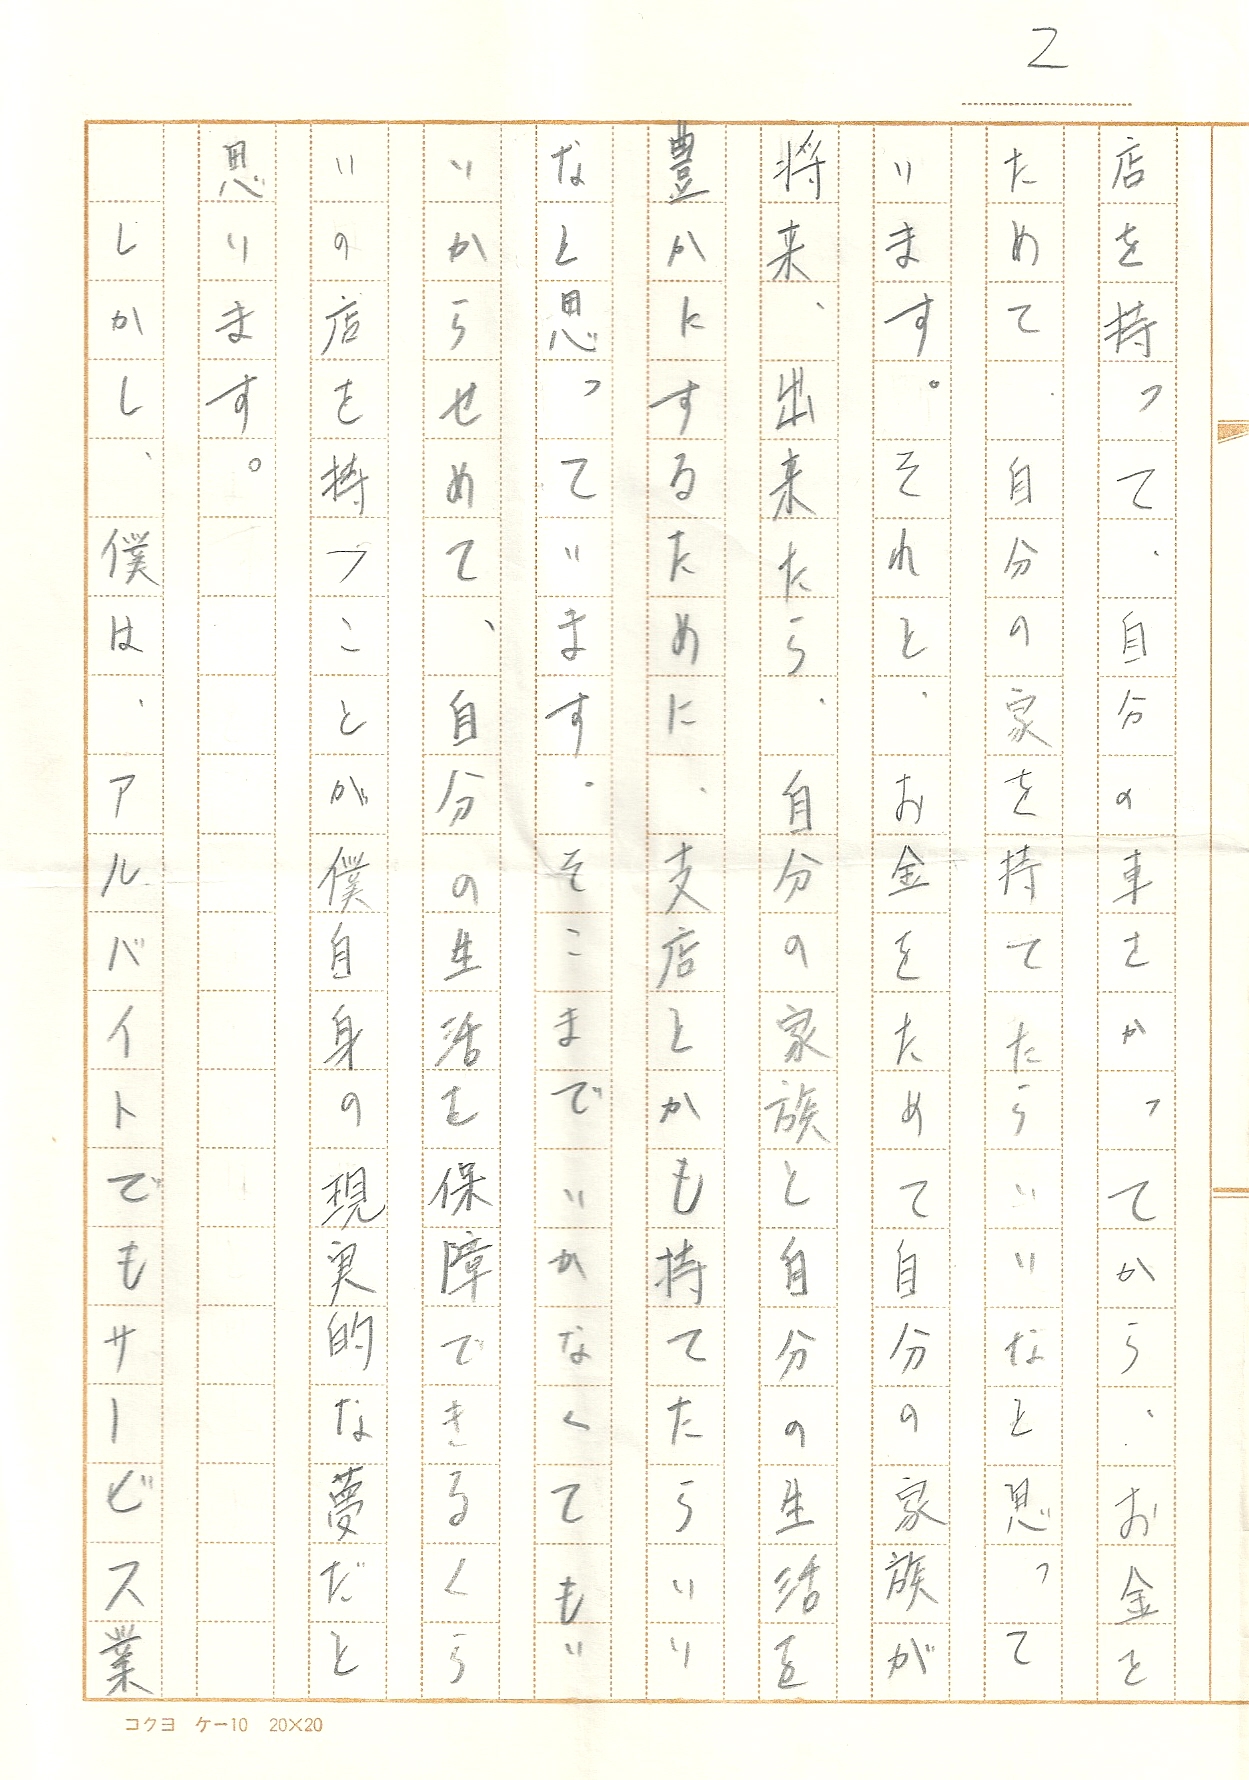 2
店を持って、自分の車をかってから、お金を
ためて、自分の家を持てたらいいなと思って
います。それと、お金をためて自分の家族が
将来、出来たら、自分の家族と自分の生活を
豊かにするために、支店とかも持てたらいい
なと思っています。そこまでいかなくてもい
いからせめて、自分の生活を保障できるくら
いの店を持つことが僕自身の現実的な夢だと
思います。
しかし、僕は、アルバイトでもサービス業
コクヨ ケー10 20×20